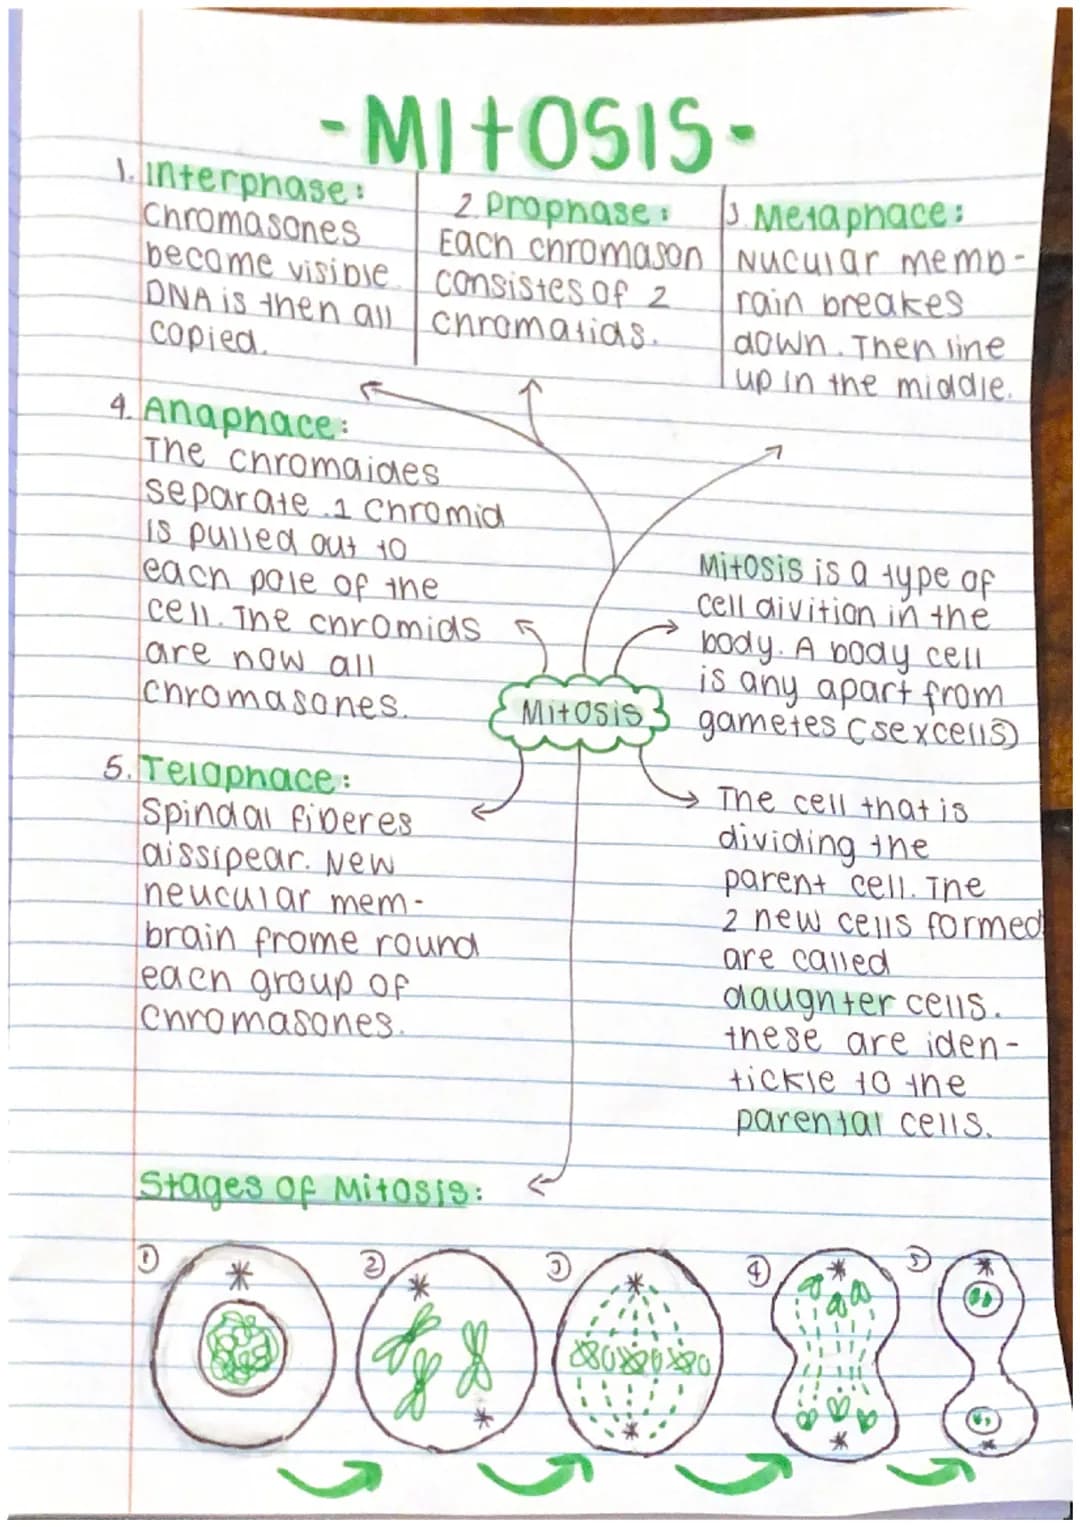 -MItOSIS-
1. Interphase:
Chromasones
become visible.
DNA is then all
copied.
2. Prophase:
Each chromason
consistes of 2
chromatids.
3. Metaphace:
Nucular memb-
rain breakes
down. Then line
up in the middle.
4. Anaphace:
The chromaides
separate. 1 chromid
is pulled out to
each pole of the
cell. The chromids
are now all
chromasones.
5. Telaphace:
Spindal fiberes
dissipear. New
neucular mem-
brain frome round
each group of
chromasones.
Mitosis
Mitosis is a type of
cell divition in the
body. A body cell
is any apart from
gametes (sex cells)
The cell that is
dividing the
parent cell. The
2 new cells formed
are called
daughter cells.
these are iden-
tickle to the
parental cells.
Stages of Mitosis:
1
2
3
4
5